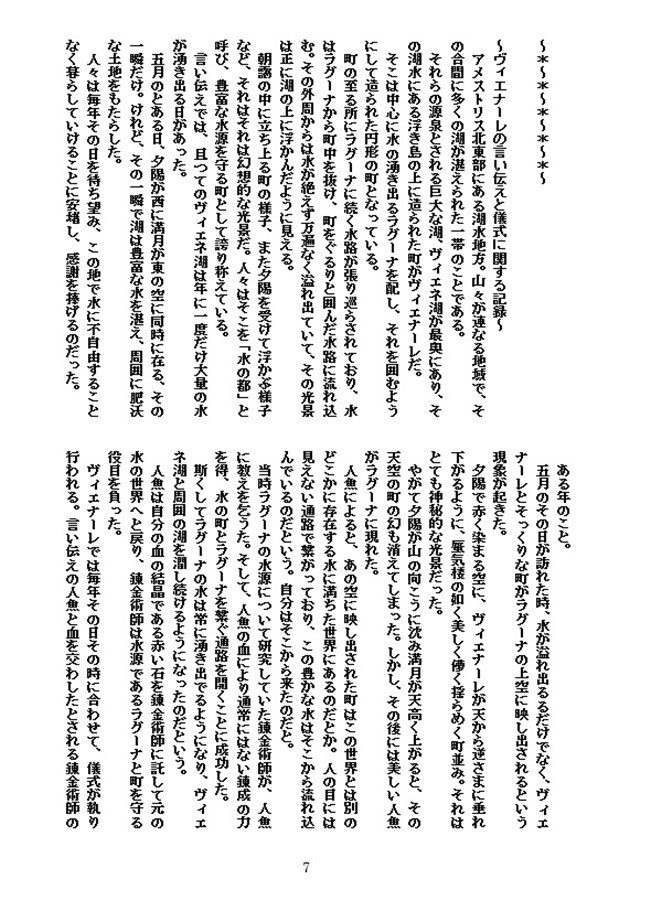 ～＊～＊～＊～＊～＊～
～ヴィエナーレの言い伝えと儀式に関する記録～
　アメストリス北東部にある湖水地方。山々が連なる地域で、そ
の合間に多くの湖が湛えられた一帯のことである。
　それらの源泉とされる巨大な湖、ヴィエネ湖が最奥にあり、そ
の湖水にある浮き島の上に造られた町がヴィエナーレだ。
　そこは中心に水の湧き出るラグーナを配し、それを囲むよう
にして造られた円形の町となっている。
　町の至る所にラグーナに続く水路が張り巡らされており、水
はラグーナから町中を抜け、町をぐるりと囲んだ水路に流れ込
む。その外周からは水が絶えず万遍なく溢れ出ていて、その光景
は正に湖の上に浮かんだように見える。
　朝靄の中に立ち上る町の様子、また夕陽を受けて浮かぶ様子
など、それはそれは幻想的な光景だ。人々はそこを「水の都」と
呼び、豊富な水源を守る町として誇り称えている。
　言い伝えでは、且つてのヴィエネ湖は年に一度だけ大量の水
が湧き出る日があった。
　五月のとある日、夕陽が西に満月が東の空に同時に在る、その
一瞬だけ。けれど、その一瞬で湖は豊富な水を湛え、周囲に肥沃
な土地をもたらした。
　人々は毎年その日を待ち望み、この地で水に不自由すること
なく暮らしていけることに安堵し、感謝を捧げるのだった。
　ある年のこと。
　五月のその日が訪れた時、水が溢れ出るるだけでなく、ヴィエ
ナーレとそっくりな町がラグーナの上空に映し出されるという
現象が起きた。
　夕陽で赤く染まる空に、ヴィエナーレが天から逆さまに垂れ
下がるように、蜃気楼の如く美しく儚く揺らめく町並み。それは
とても神秘的な光景だった。
　やがて夕陽が山の向こうに沈み満月が天高く上がると、その
天空の町の幻も消えてしまった。しかし、その後には美しい人魚
がラグーナに現れた。
　人魚によると、あの空に映し出された町はこの世界とは別の
どこかに存在する水に満ちた世界にあるのだとか。人の目には
見えない通路で繋がっており、この豊かな水はそこから流れ込
んでいるのだという。自分はそこから来たのだと。
　当時ラグーナの水源について研究していた錬金術師が、人魚
に教えを乞うた。そして、人魚の血により通常にはない錬成の力
を得、水の町とラグーナを繋ぐ通路を開くことに成功した。
　斯くしてラグーナの水は常に湧き出でるようになり、ヴィエ
ネ湖と周囲の湖を潤し続けるようになったのだという。
　人魚は自分の血の結晶である赤い石を錬金術師に託して元の
水の世界へと戻り、錬金術師は水源であるラグーナと町を守る
役目を負った。
　ヴィエナーレでは毎年その日その時に合わせて、儀式が執り
行われる。言い伝えの人魚と血を交わしたとされる錬金術師の
7